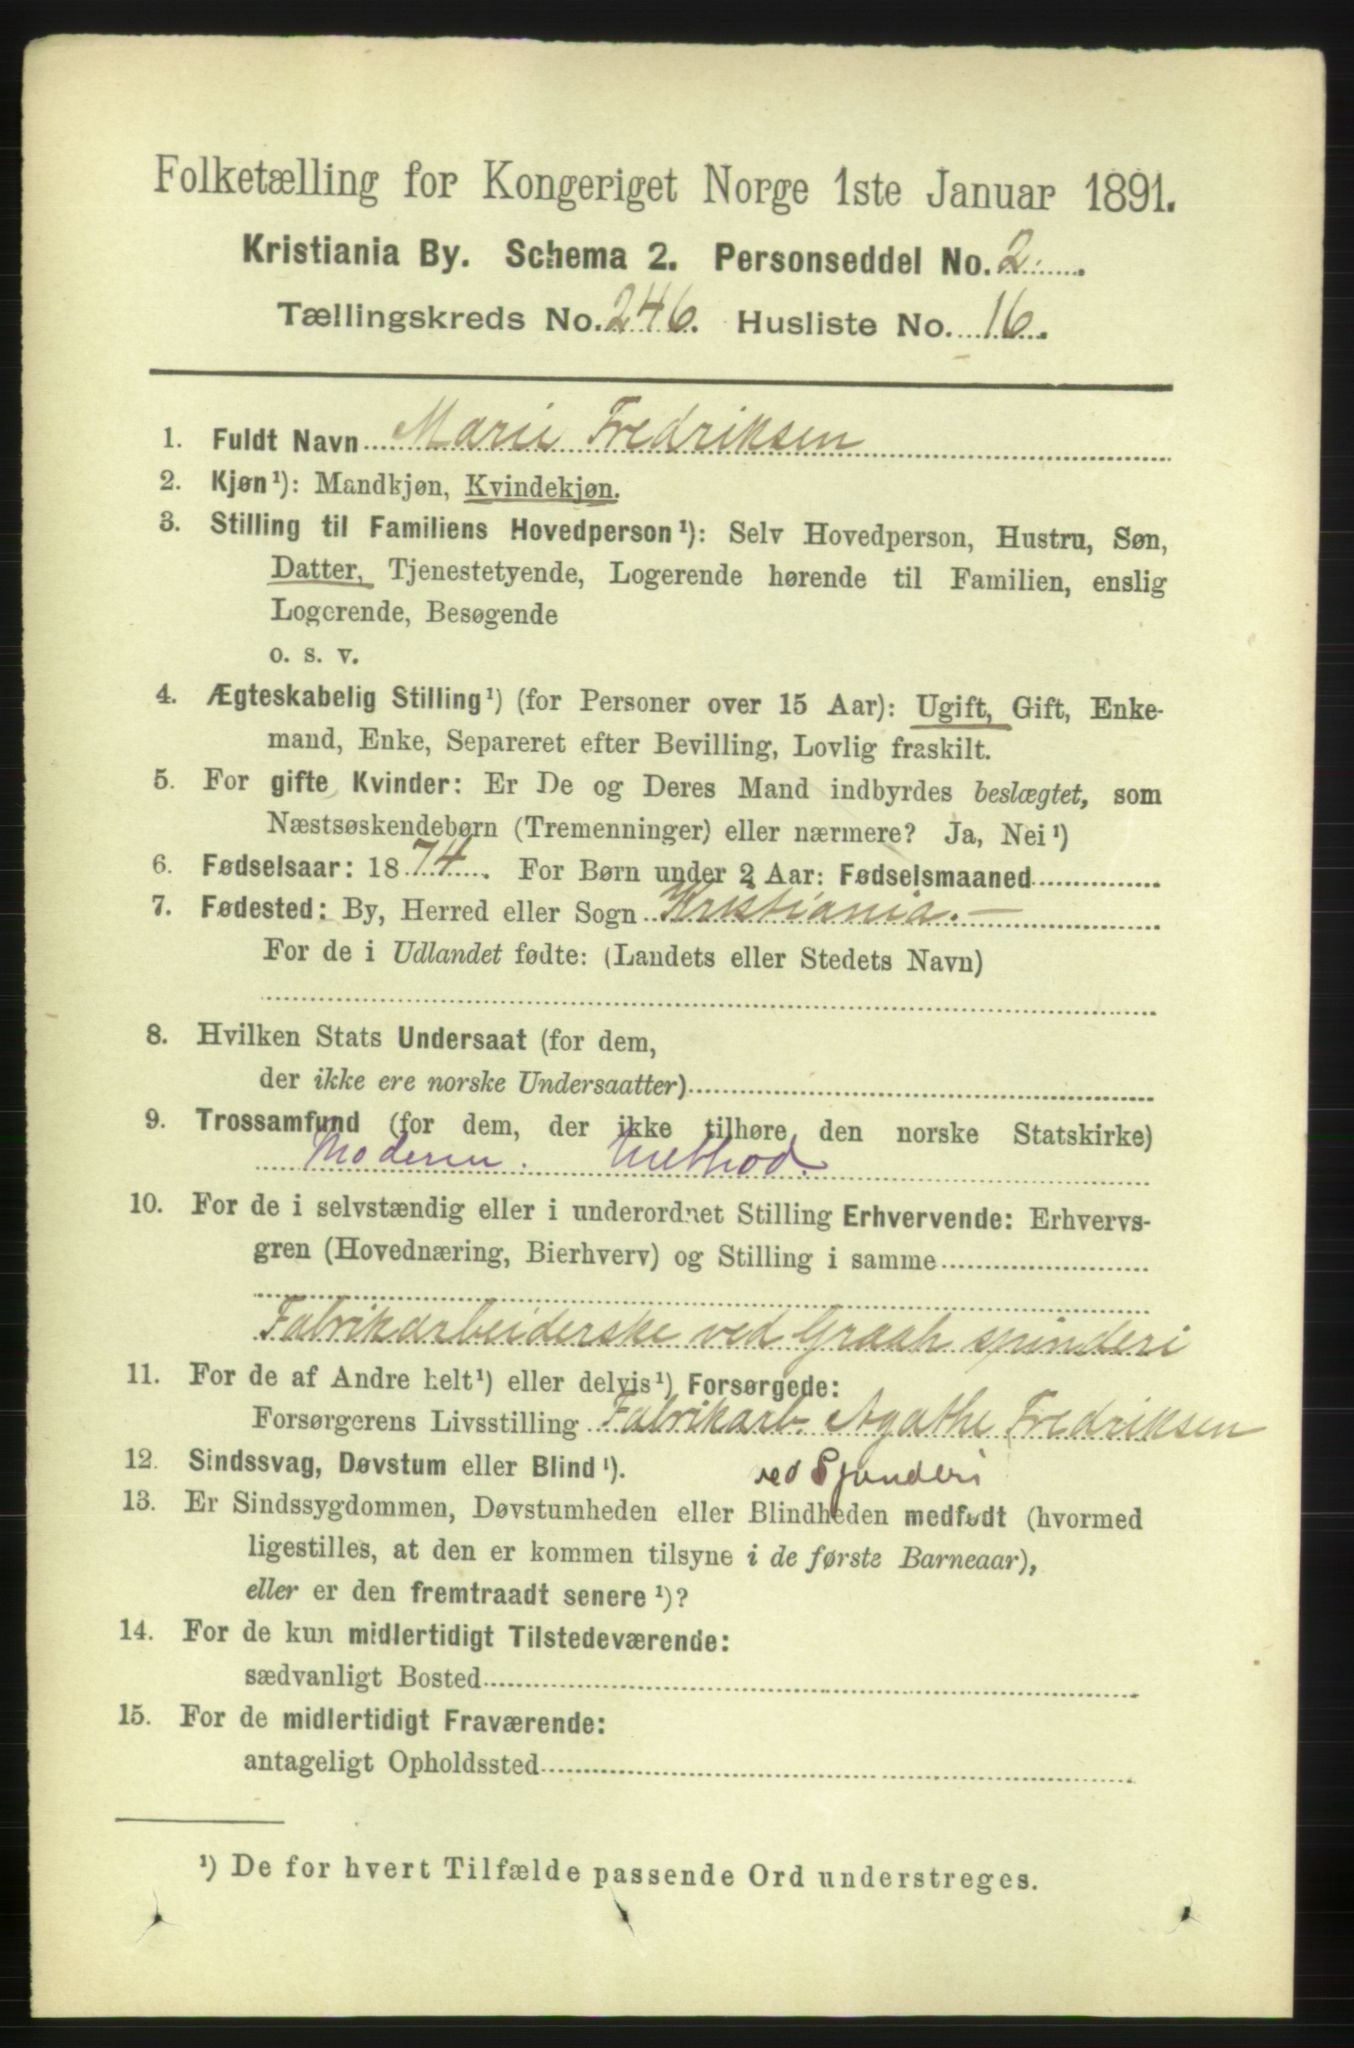 Folketælling for Kongeriget Norge 1ste Januar 1891.
Kristiania By. Schema 2. Personseddel No. 2
Tællingskreds No. 246. Husliste No. 16.
1. Fuldt Navn Marie Fredriksen
2. Kjøn¹): Mandkjøn, Kvindekjøn.
3. Stilling til Familiens Hovedperson¹): Selv Hovedperson, Hustru, Søn,
Datter, Tjenestetyende, Logerende hørende til Familien, enslig
Logerende, Besøgende
o. s. v.
4. Ægteskabelig Stilling¹) (for Personer over 15 Aar): Ugift, Gift, Enke-
mand, Enke, Separeret efter Bevilling, Lovlig fraskilt.
5. For gifte Kvinder: Er De og Deres Mand indbyrdes beslægtet, som
Næstsøskendebørn (Tremenninger) eller nærmere? Ja, Nei¹)
6. Fødselsaar: 1874. For Børn under 2 Aar: Fødselsmaaned
7. Fødested: By, Herred eller Sogn Kristiania.—
For de i Udlandet fødte: (Landets eller Stedets Navn)
8. Hvilken Stats Undersaat (for dem,
der ikke ere norske Undersaatter)
9. Trossamfund (for dem, der ikke tilhøre den norske Statskirke)
Moderen. Method.
10. For de i selvstændig eller i underordnet Stilling Erhvervende: Erhvervs-
gren (Hovednæring, Bierhverv) og Stilling i samme
Fabrikarbeiderske ved Graah spinderi
11. For de af Andre helt¹) eller delvis¹) Forsørgede:
Forsørgerens Livsstilling Fabrikarb. Agathe Fredriksen
12. Sindssvag, Døvstum eller Blind¹). ved Spinderi
13. Er Sindssygdommen, Døvstumheden eller Blindheden medfødt (hvormed
ligestilles, at den er kommen tilsyne i de første Barneaar),
eller er den fremtraadt senere¹)?
14. For de kun midlertidigt Tilstedeværende:
sædvanligt Bosted
15. For de midlertidigt Fraværende:
antageligt Opholdssted
¹) De for hvert Tilfælde passende Ord understreges.